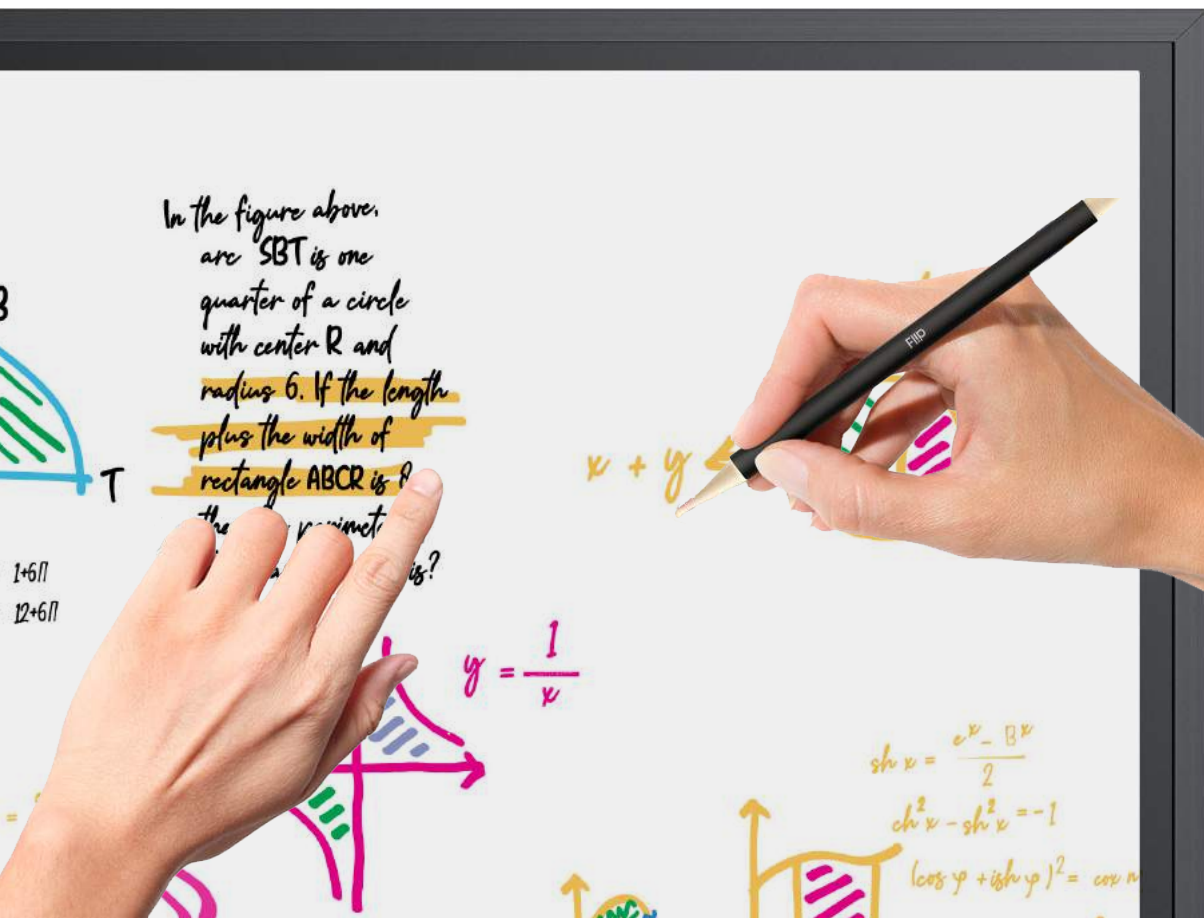 In the figure above,
arc SBT is one
quarter of a circle
with center R and
radius 6. If the length
plus the width of
rectangle ABCR is 8
the
is?
T
1+6Π
12+6Π
x + y
FlIP
y = 1/x
=
sh x = e^x - B^x / 2
ch^2 x - sh^2 x = -1
(cos φ + ish φ)^2 = cox n